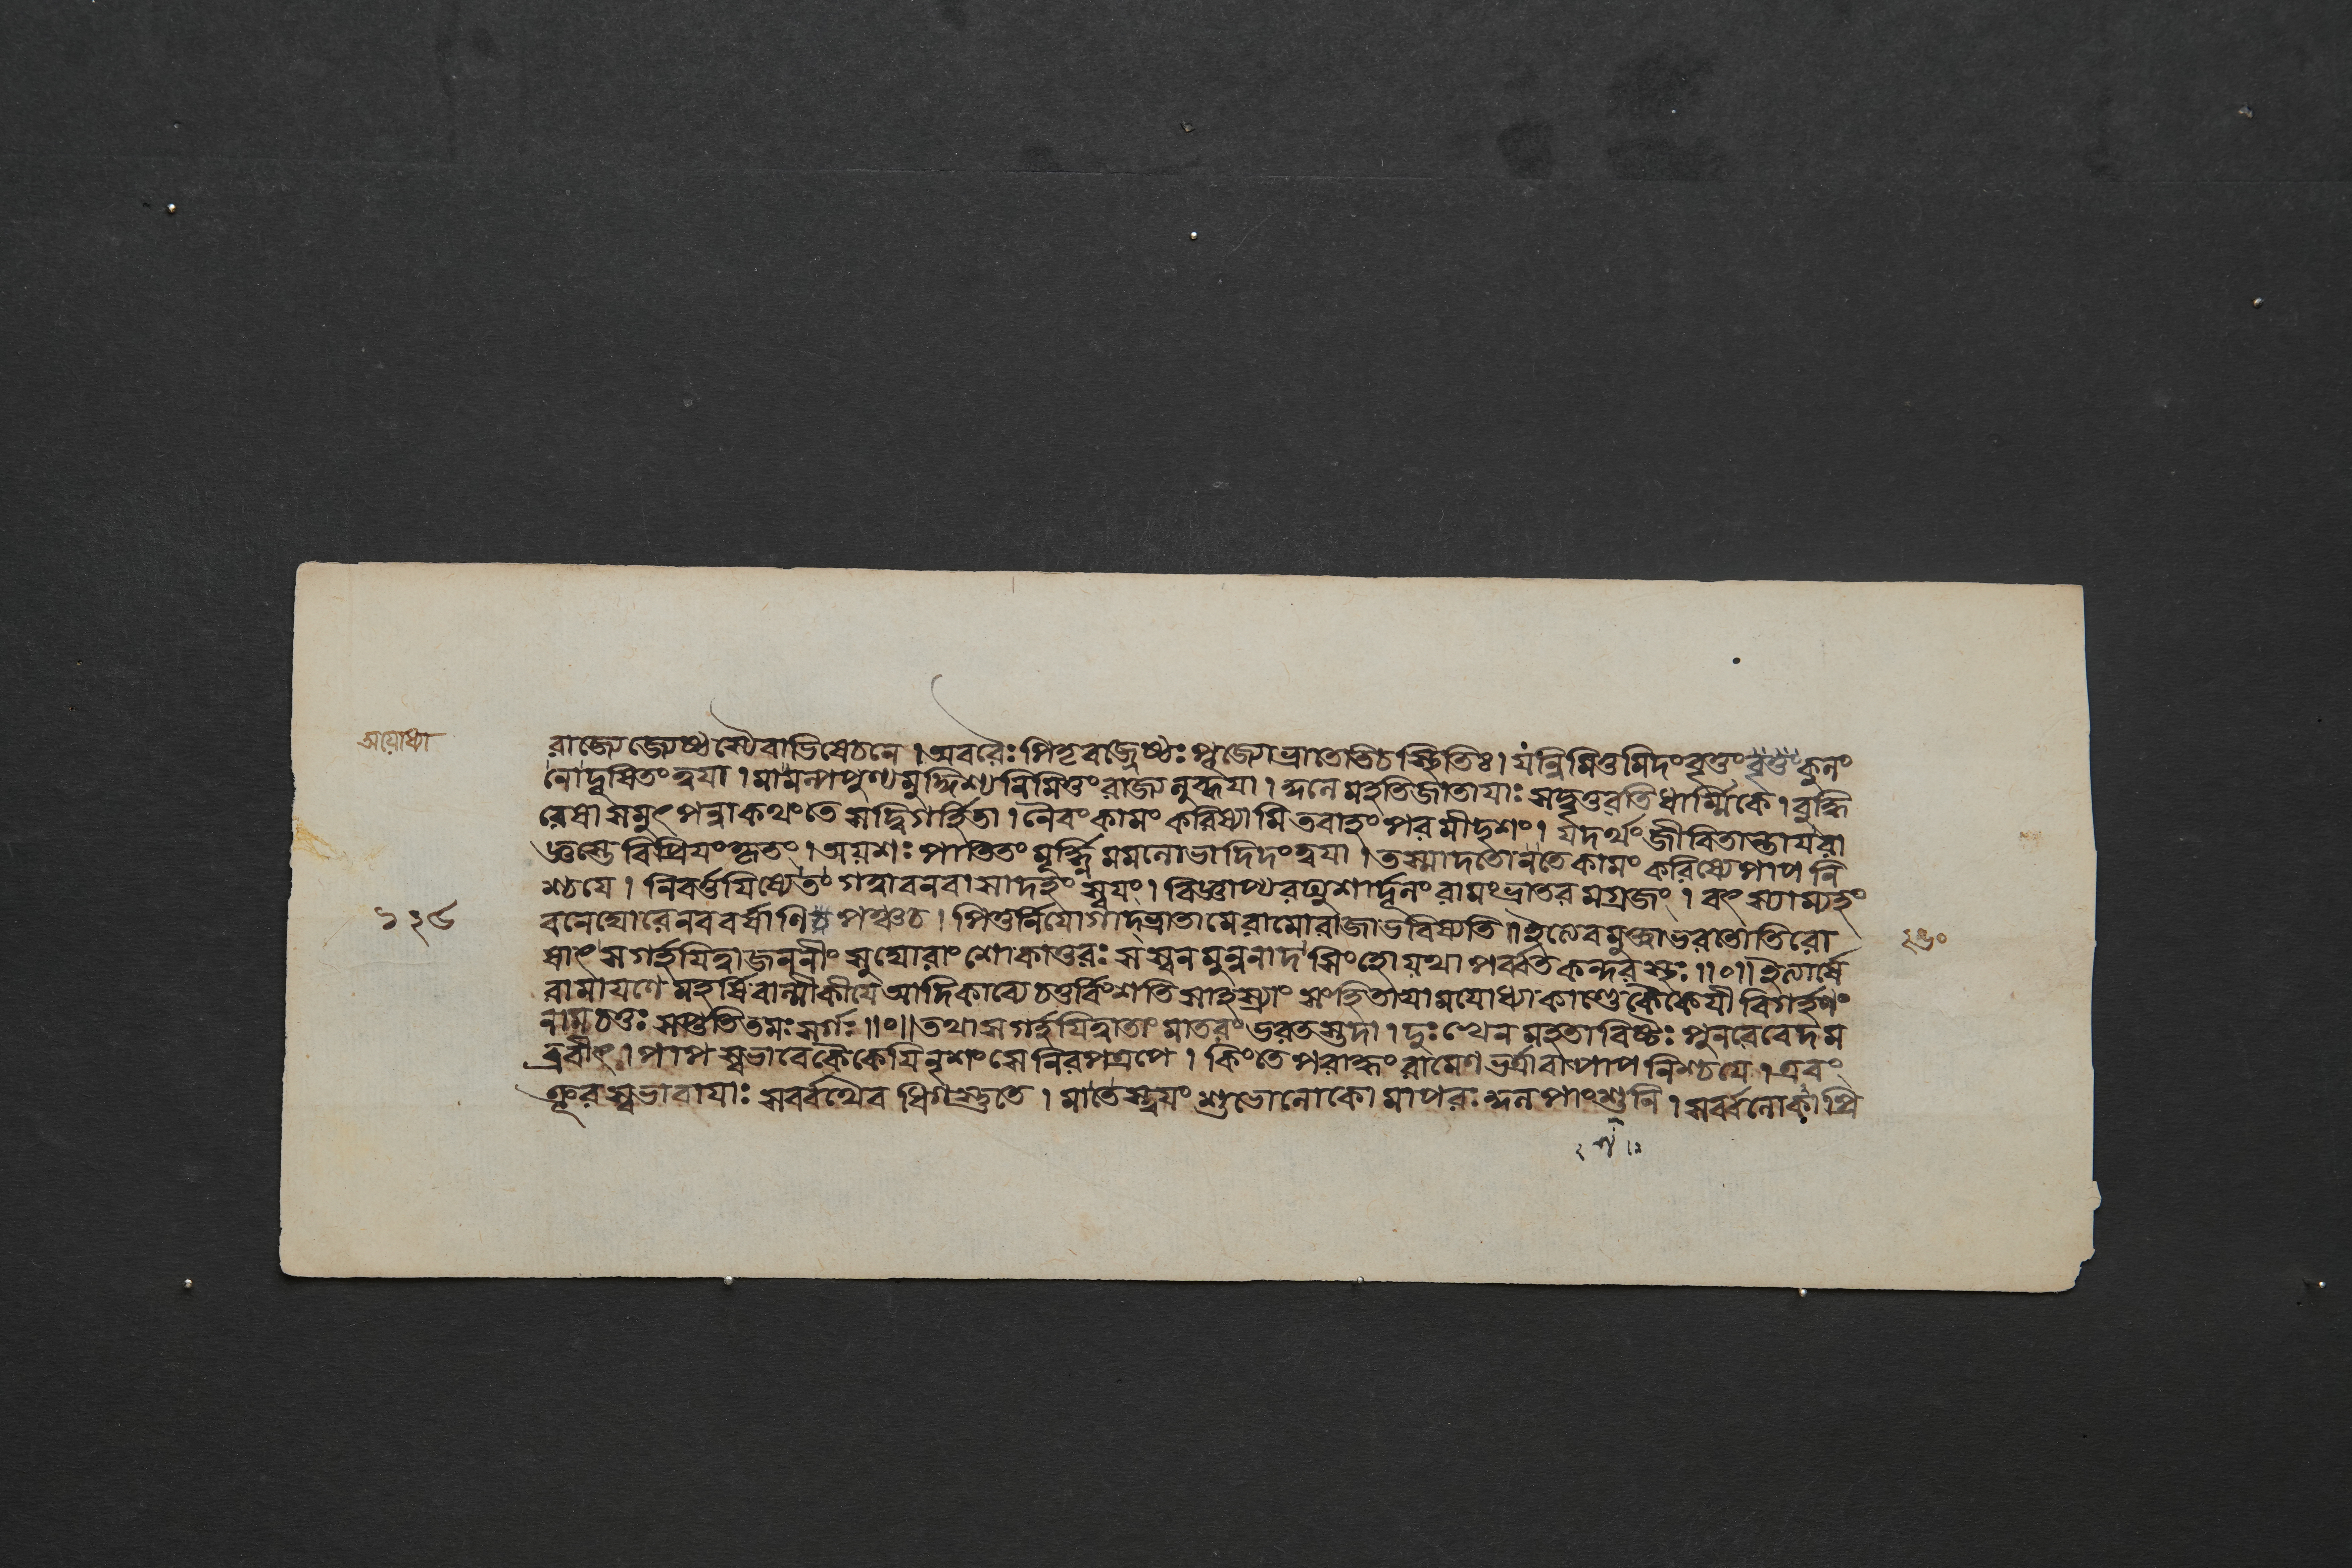 অযোধ্যা
রাজ্যে জ্যেষ্ঠস্যৈবাভিষেচনে । অবরৈঃ পিতৃবজ্জ্যেষ্ঠঃ পূজ্যো ভ্রাতেতি চ স্থিতিঃ । যন্নিমিত্তমিদং বৃত্তং কুলং
নো দূষিতং ত্বযা । মামল্পপুণ্যমুদ্দিশ্য নিমিত্তং রাজ্যলুব্ধযা । কুলে মহতি জাতাযাঃ সদ্বৃত্তবতি ধার্ম্মিকে । বুদ্ধি
রেষা সমুৎপন্না কথং তে সদ্বিগর্হিতা । নৈবং কামং করিষ্যামি তবাহং পরমীদৃশং । যদর্থং জীবিতান্তায রা
জ্ঞস্তে বিপ্রিযং কৃতং । অযশঃ পাতিতং মূর্দ্ধ্নি মম লোভাদিদং ত্বযা । তস্মাদতো ন তে কামং করিষ্যে পাপনি
শ্চযে । নিবর্ত্তযিষ্যে তং গত্বা বনবাসাদহং স্বযং । বিজ্ঞাপ্য রঘুশার্দ্দূলং রামং ভ্রাতরমগ্রজং । বৎস্যাম্যহং
১২৮
বনে ঘোরে নব বর্ষাণি পঞ্চ চ । পিতুর্নিযোগাদ্ভ্রাতা মে রামো রাজা ভবিষ্যতি ॥ ইত্যেবমুক্ত্বা ভরতোতিরো
২৬০
ষাৎ স গর্হযিত্বা জননীং সুঘোরাং শোকাতুরঃ সস্বনমুন্ননাদ সিংহো যথা পর্ব্বতকন্দরস্থঃ ॥০॥ ইত্যার্ষে
রামাযণে মহর্ষিবাল্মীকীযে আদিকাব্যে চতুর্ব্বিংশতিসাহস্র্যাং সংহিতাযামযোধ্যাকাণ্ডে কৈকেযীবিগর্হণং
নাম চতুঃসপ্ততিতমঃ সর্গঃ ॥০॥ তথা স গর্হযিত্বা তাং মাতরং ভরতস্তদা । দুঃখেন মহতাবিষ্টঃ পুনরেবেদম
ব্রবীৎ । পাপস্বভাবে কৈকেযি নৃশংসে নিরপত্রপে । কিং তে পরাদ্ধং রামেণ ভর্ত্রা বা পাপনিশ্চযে । এবং
ক্রূরস্বভাবাযাঃ সর্ব্বথৈব ধিগস্তু তে । মা তে স্ত্বযং শুভো লোকো মাপরঃ কুলপাংশুলি । সর্ব্বলোকাপ্রি